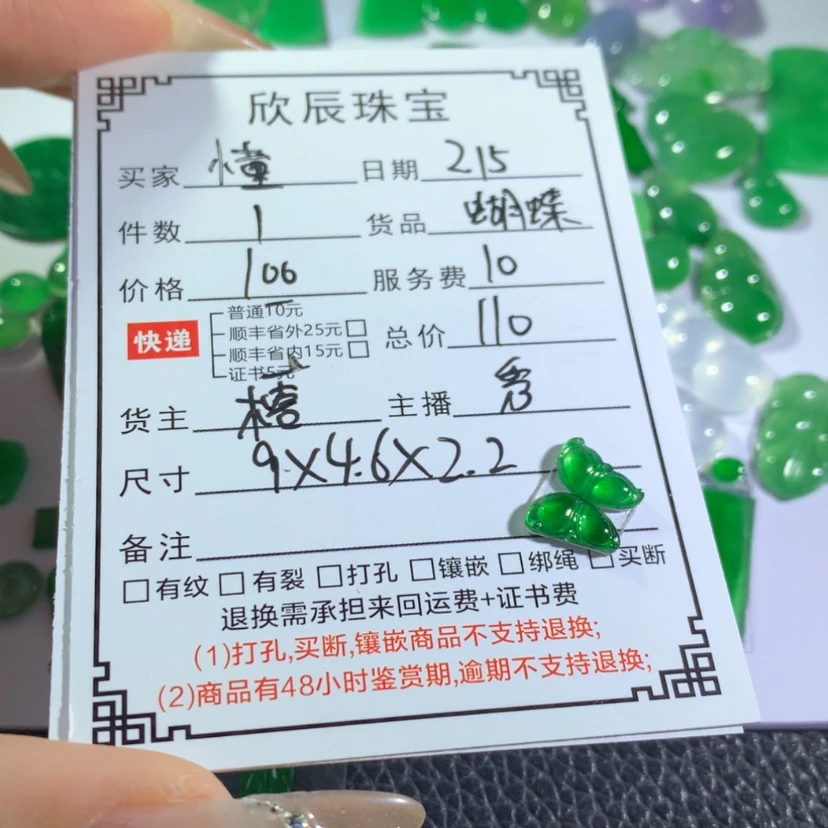 欣辰珠宝
买家 憧 日期 215
件数 1 货品 蝴蝶
价格 100 服务费 10
快递 普通10元
顺丰省外25元□
顺丰省内15元□ 总价 110
证书5元
货主 禧 主播 秀
尺寸 9X4.6X2.2
备注
□有纹 □有裂 □打孔 □镶嵌 □绑绳 □买断
退换需承担来回运费+证书费
(1)打孔,买断,镶嵌商品不支持退换;
(2)商品有48小时鉴赏期,逾期不支持退换;